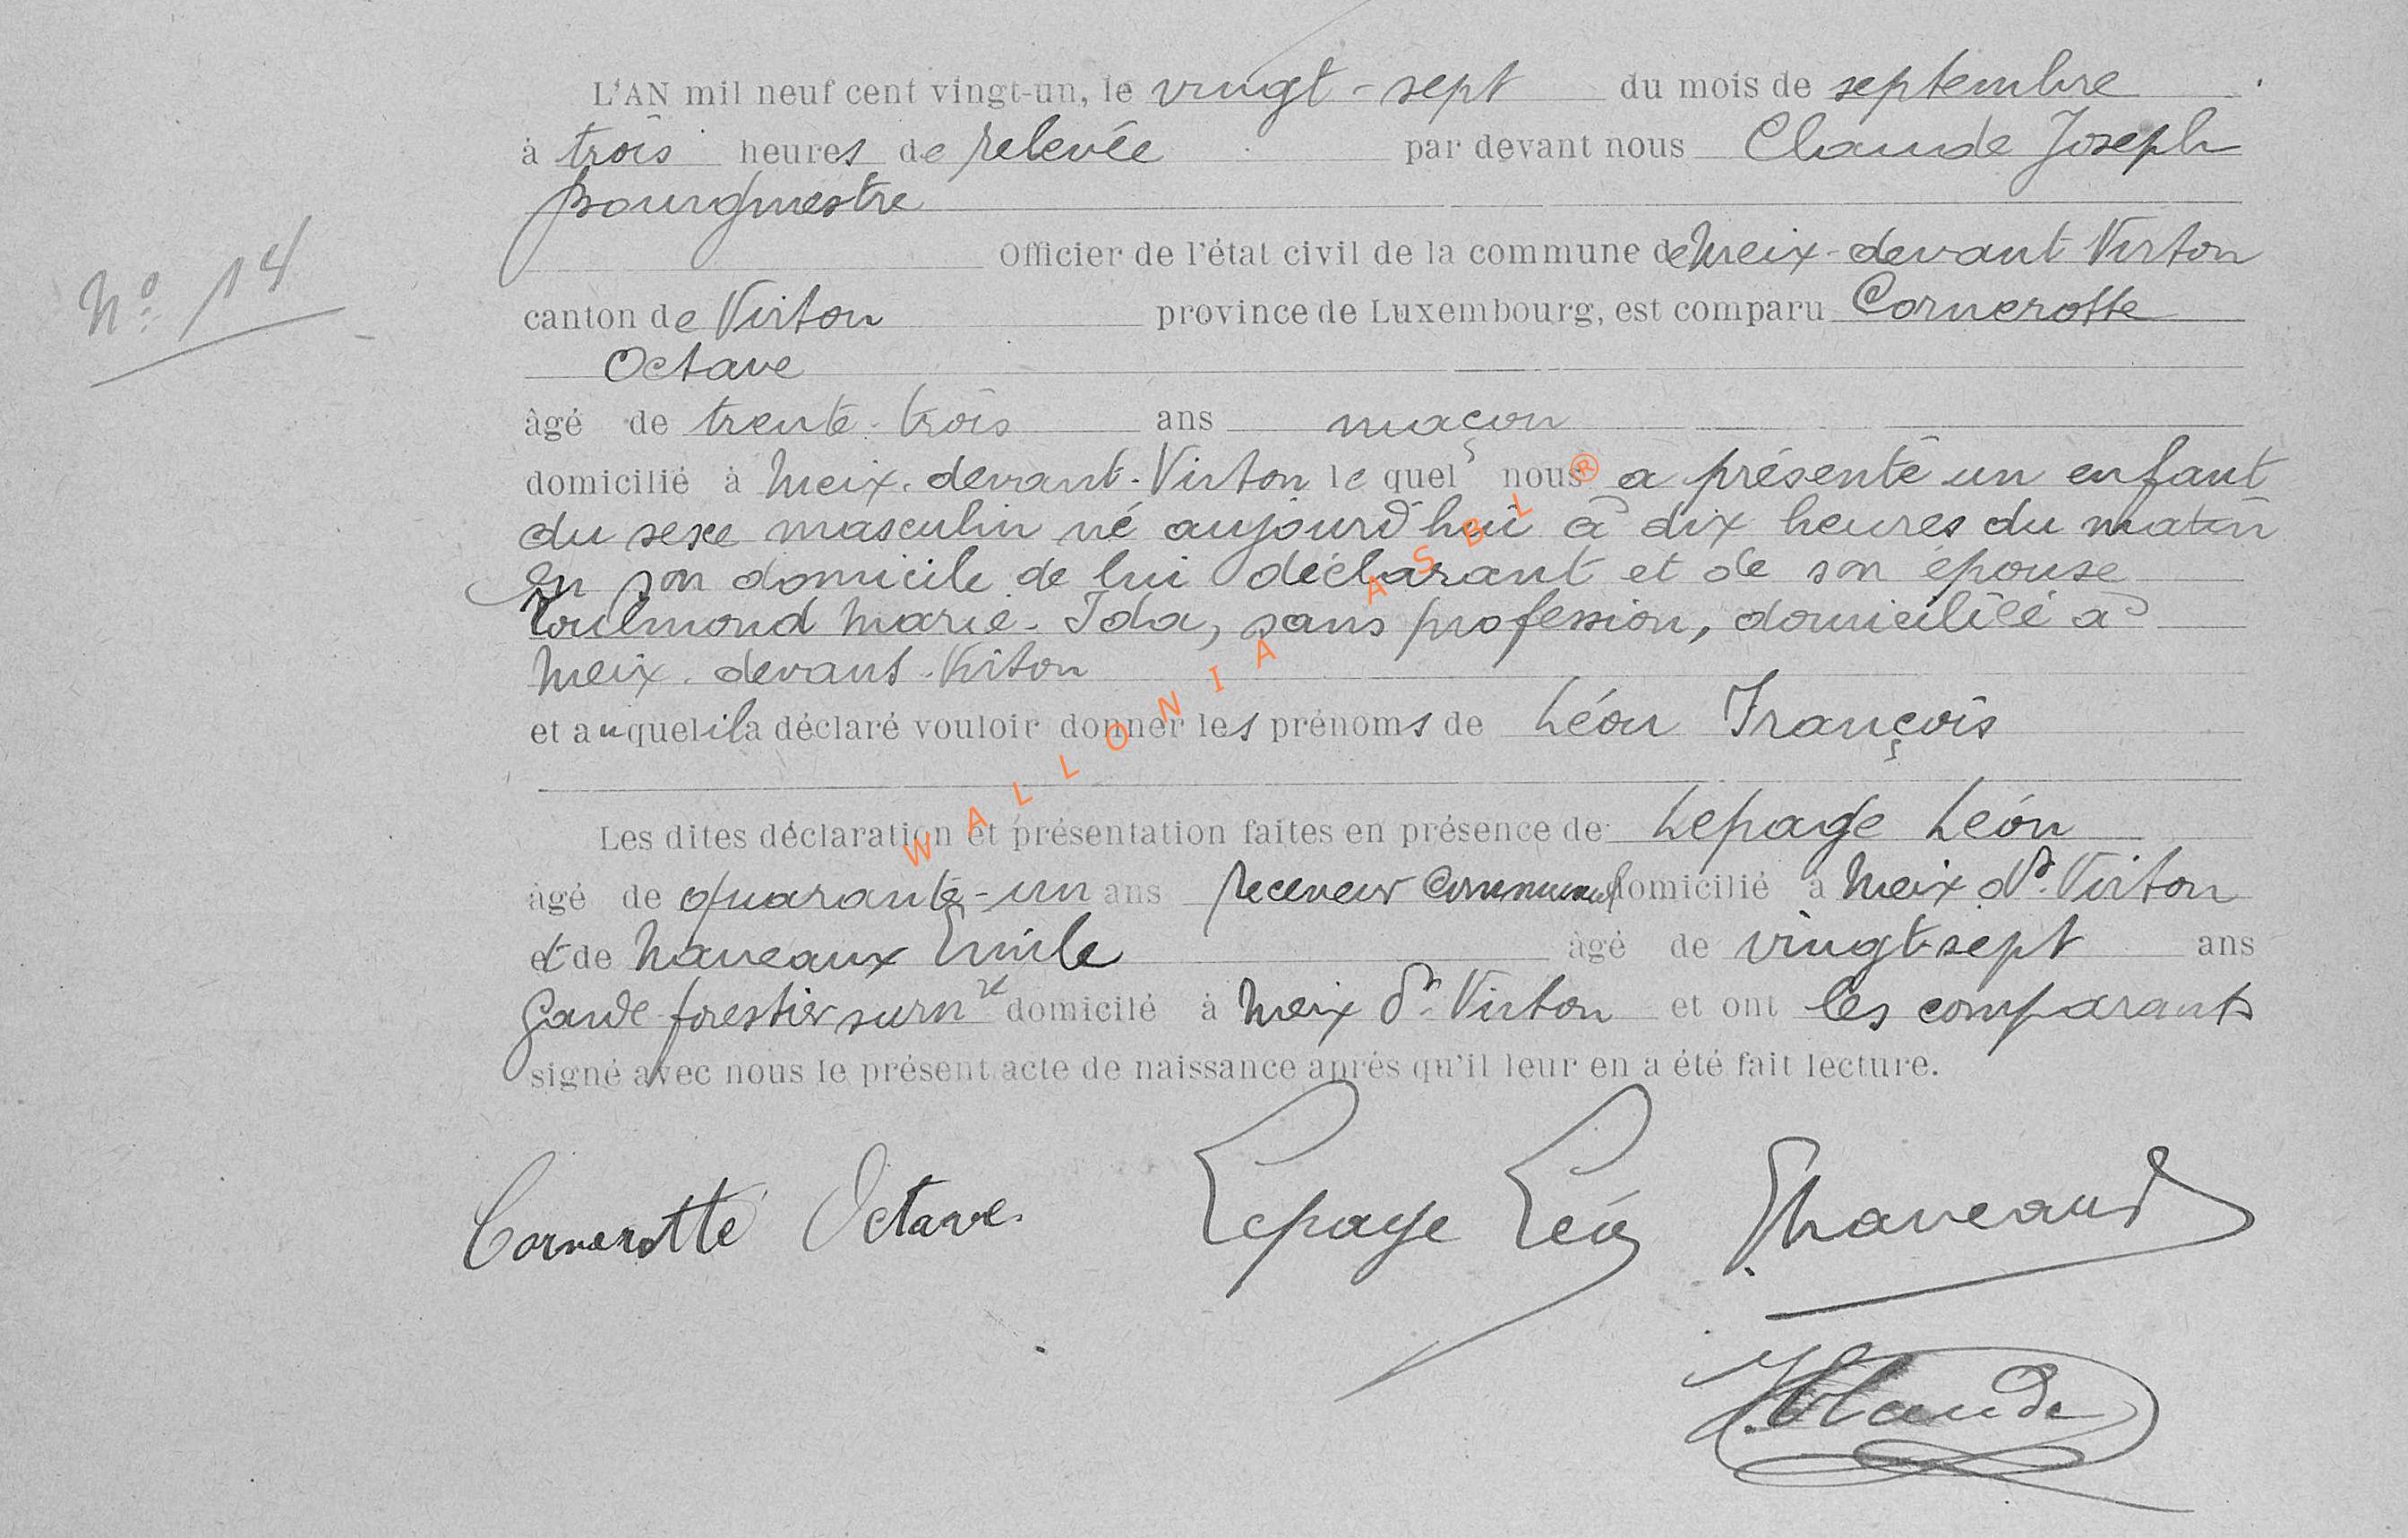 L'AN mil neuf cent vingt-un, le vingt-sept du mois de septembre
à trois heures de relevée par devant nous Claude Joseph
bourgmestre
Officier de l'état civil de la commune de Meix-devant Virton
N° 14
canton de Virton province de Luxembourg, est comparu Cornerotte
Octave
âgé de trente-trois ans maçon
domicilié à Meix-devant-Virton lequel nous a présenté un enfant
du sexe masculin né aujourd'hui à dix heures du matin
en son domicile de lui déclarant et de son épouse
Toulmond Marie-Ida, sans profession, domiciliée à
Meix-devant-Virton
et auquel il a déclaré vouloir donner les prénoms de Léon François
Les dites déclaration et présentation faites en présence de Lepage Léon
âgé de quarante-un ans receveur communal domicilié à Meix dt Virton
et de Naveaux Emile âgé de vingt-sept ans
garde forestier surn re domicilé à Meix dt Virton et ont les comparants
signé avec nous le présent acte de naissance après qu'il leur en a été fait lecture.
Cornerotte Octave Lepage Léon ENaveaux
J. Claude
WALLONIA ASBL ®